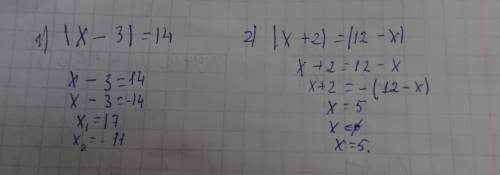 1) |X - 3| = 14
X - 3 = 14
X - 3 = -14
X₁ = 17
X₂ = -11
2) |X + 2| = |12 - X|
X + 2 = 12 - X
X + 2 = -(12 - X)
X = 5
X = ø
X = 5.